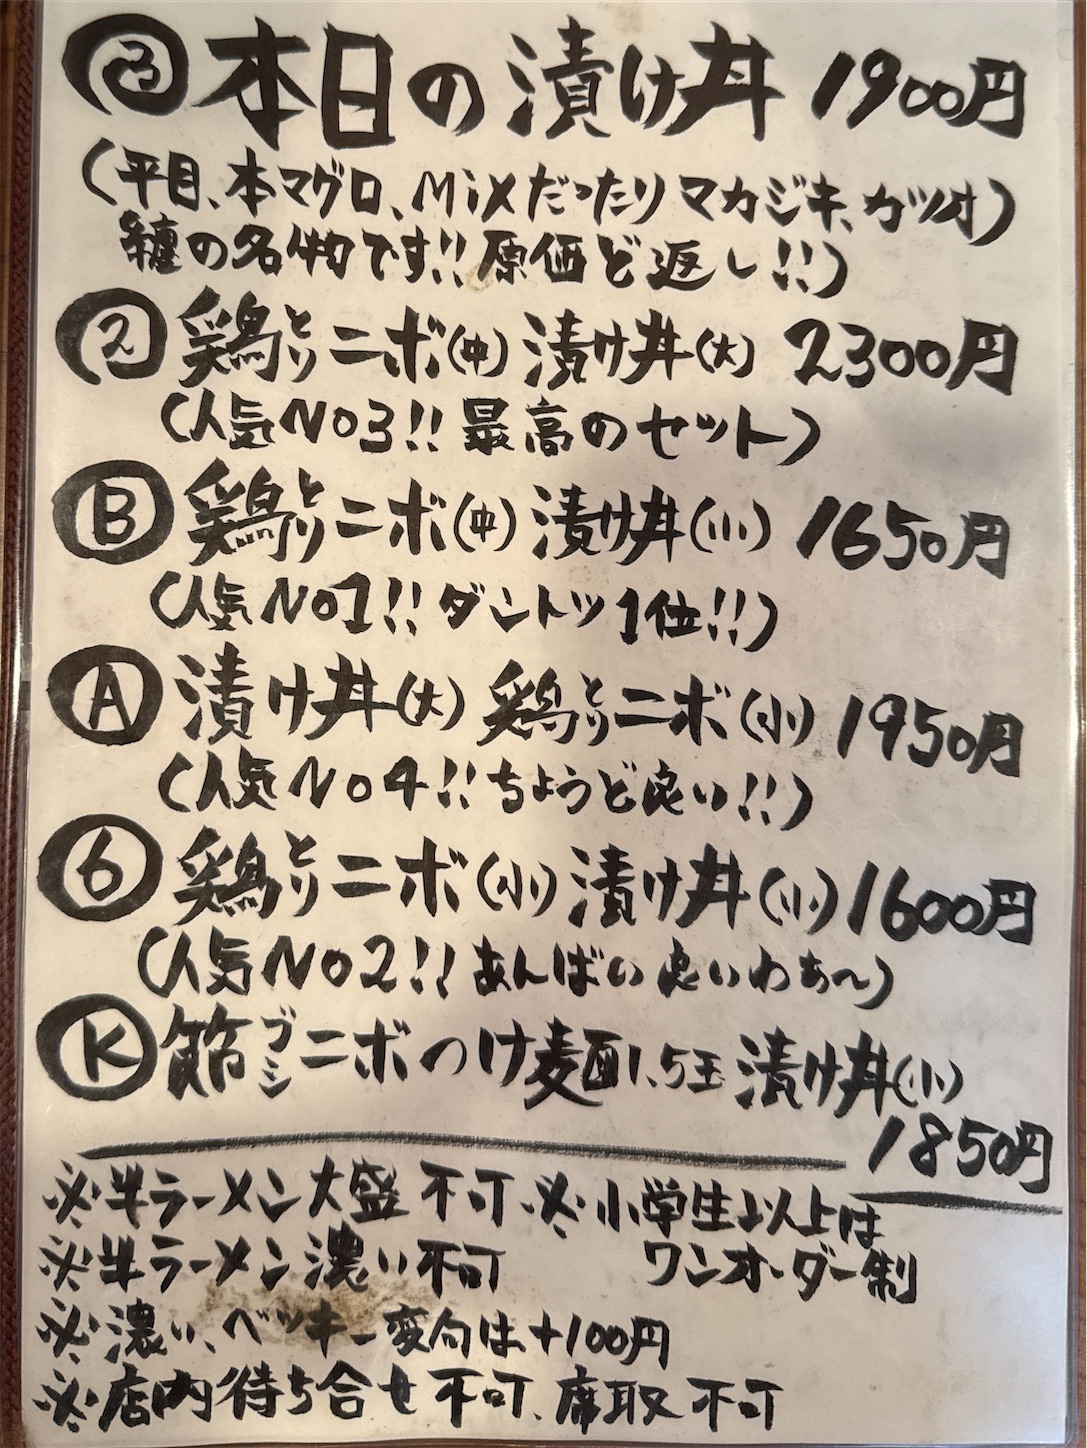 ③ 本日の漬け丼 1900円
(平目、本マグロ、Mixだったりマカジキ、カツオ)
纏の名物です!!原価ど返し!!)
② 鶏とりニボ(中) 漬け丼(大) 2300円
(人気No3!! 最高のセット)
Ⓑ 鶏とりニボ(中) 漬け丼(小) 1650円
(人気No1!! ダントツ1位!!)
Ⓐ 漬け丼(大) 鶏とりニボ(小) 1950円
(人気No4!! ちょうど良い!!)
⑥ 鶏とりニボ(小) 漬け丼(小) 1600円
(人気No2!! あんばい良いわぁ〜)
Ⓚ 節ブシニボつけ麺1.5玉 漬け丼(小)
1850円
※半ラーメン大盛 不可 ※小学生以上は
※半ラーメン濃い不可 ワンオーダー制
※濃い、ベッキー変更は+100円
※店内待ち合せ不可、席取不可